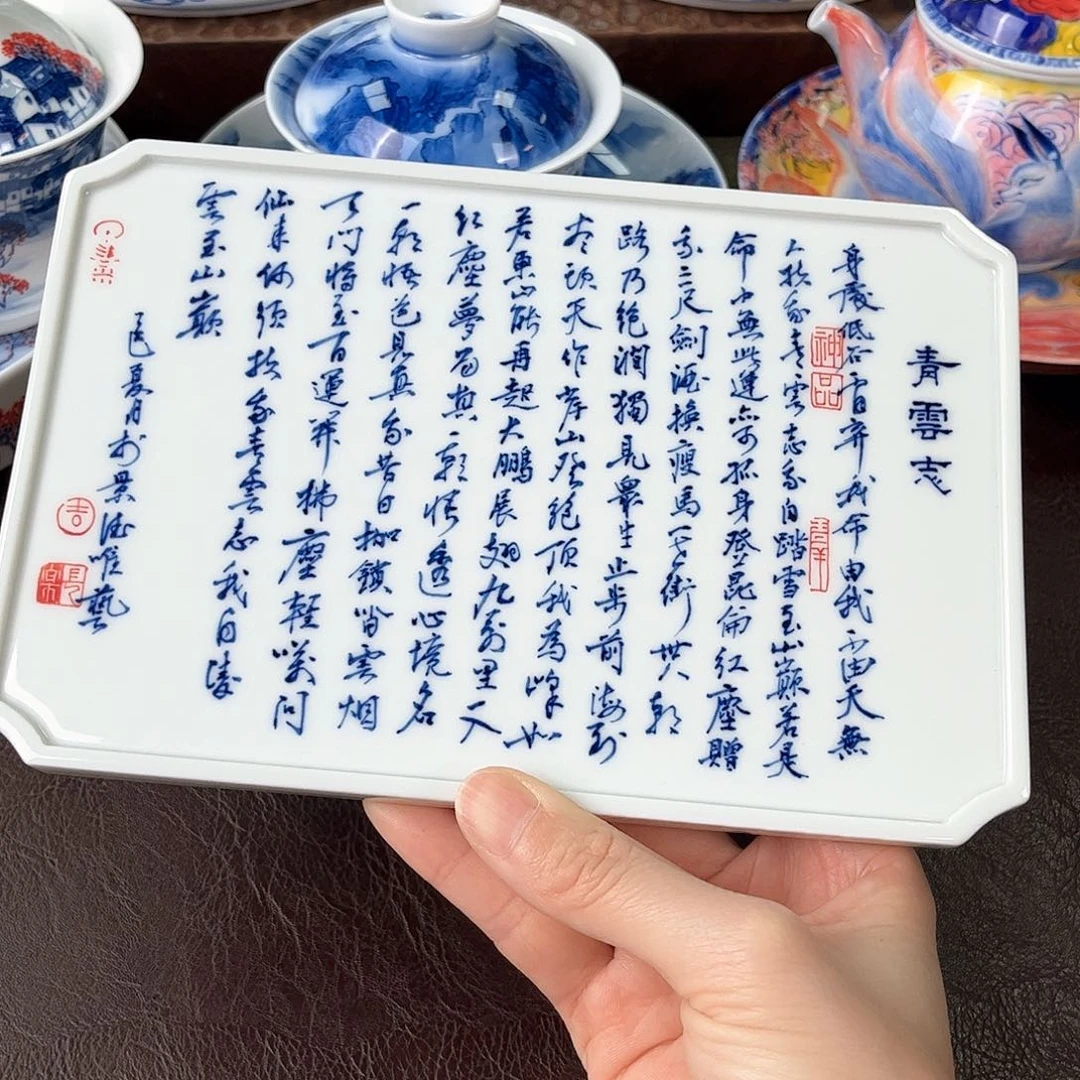 青雲志
身處低谷不自弃我命由我不由天無
人扶我青雲志我自踏雪至山巔若是
命中無此運亦可孤身登昆侖紅塵贈
我三尺劍酒換瘦馬一世街世人朝
路乃絕澗獨見眾生止步前海到
盡頭天作岸山登絕頂我為峰如
若東山能再起大鵬展翅九萬里一入
紅塵夢易真一朝悟透心境名
一朝悟道見真我昔日枷鎖皆雲烟
天門將至百運開拂塵輕嘆問
仙來何須扶我青雲志我自淩
雲至山巔
乙巳夏月於景德唯藝
神品
吉羊
吉